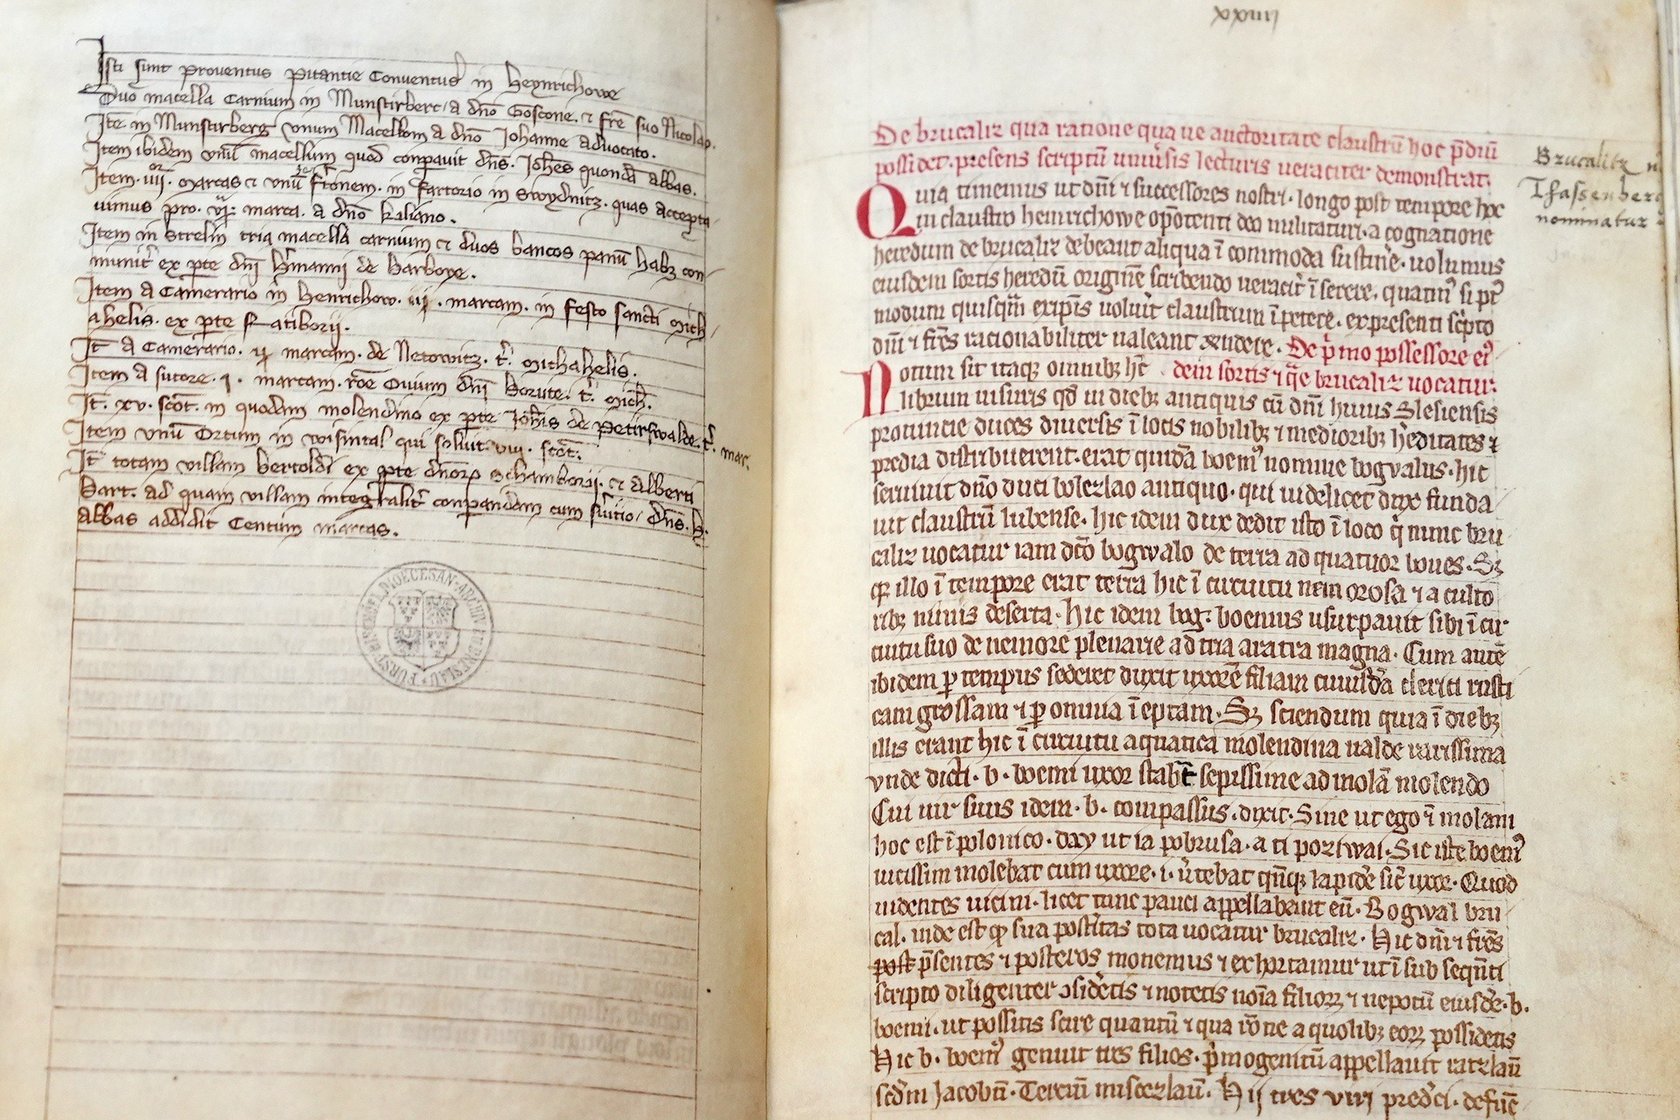 Isti sunt proventus pitantie Conventus in Heynrichowe
Duo macella Carnium in Munstirberc, a dno Goscone, et fre suo Nicolao.
Ite in Munstirberg unum Macellum a dno Johanne advocato.
Item ibidem unu macellum quod conparavit dns. Johes quonda abbas.
Item. iiij. marcas et unu ftonem. in fartorio in Swydnitz. quas accepta
vimus pro. vj. marca. a dno kiliano.
Item in Strelin tria macella carnium et duos bancos panu habz con
ex pte dni hmanni de Barboye.
Item a Camerario in henrichow. iij. marcam. in festo sancti mich
ahelis. ex pte Ratiborii.
It a Camerario. marcam. de Netowitz. t. michahelis.
Item a sutore. j. marcam. roe Ovium dni Borute. t. mich.
It. xv. scot. in quodam molendino ex pte Johis de petirswalde. t. mar.
Item unu Ortum in wisintal qui solvit. viij. scot.
It totam villam bertoldi ex pte dnorz Schamborii. et alberti
Bart. ad quam villam integralit conparandam cum dns. h.
abbas addidit Centum marcas.
xxiiij
De brucaliz qua ratione qua ve auctoritate claustru hoc pdiu
possidet. presens scriptu univsis lecturis veraciter demonstrat.
Quia timemus ut dni et successores nostri. longo post tempore hoc
in claustro heinrichowe opotenti deo militaturi. a cognatione
heredum de brucaliz debeant aliqua i commoda sustine. volumus
eiusdem sortis heredu origine scribendo veracit i serere. quatin si pt
modum quisqm ex ipis voluit claustrum i petere. ex presenti scpto
dni et fres rationabiliter valeant rndere. De pmo possessore ei
Notum sit itaqz omnibz hc dem sortis et qre brucaliz vocatur.
librum visuris qd in diebz antiquis cu dni huius Slesiensis
provincie duces diversis i locis nobilibz et mediocribz heditates et
predia distribuerent. erat quida boem nomine bogvalus. hic
servivit dno duci bolezlao antiquo. qui videlicet dux funda
vit claustru lubense. hic idem dux dedit isto i loco q nunc bru
caliz vocatur iam dco bogwalo de terra ad quatuor boves. Sz
qz illo i tempore erat terra hic i circuitu nemorosa et a culto
ribz nimis deserta. hic idem bog. boemus usurpavit sibi i cir
cuitu suo de nemore plenarie ad tria aratra magna. Cum aute
ibidem p tempus sederet duxit uxore filiam cuiusda clerici rusti
cam grossam et p omnia i eptam. Sz sciendum quia i diebz
illis erant hic i circuitu aquatica molendina valde rarissima
vnde dicti. b. boemi uxor stabt sepissime ad mola molendo
Cui vir suus idem. b. compassus. dixit. Sine ut ego i molam
hoc est i polonico. day ut ia pobrusa. a ti poziwai. Sic iste boem
vicissim molebat cum uxore. i. vtebat qnqz lapide sic uxor. Quod
videntes vicini. licet tunc pauci appellabant eu. Bogwal bru
cal. inde est qz sua postitas tota vocatur brucaliz. Hic dni et fres
post psentes et posteros monemus et exhortamur ut i sub seqnti
scripto diligenter osidetis et notetis noia filiorz et nepotu eiusde. b.
boemi. ut possitis scire quantu et qua roe a quolibz eorz possidetis
Hic b. boem genuit tres filios. pmogenitu appellavit ratzlau
scdm Jacobu. Terciu miscezlau. Hij tres viri predci. defuc
Brucalitz n
Thassenberg
nominatur
FÜRSTBISCHÖFL. DIÖCESAN-ARCHIV IN BRESLAU